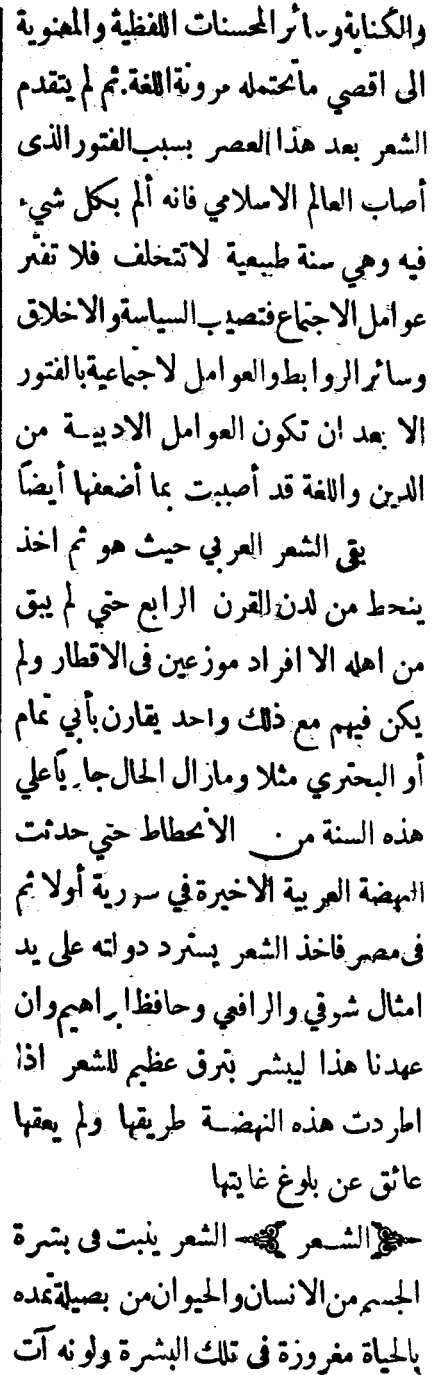 والكناية وسائر المحسنات اللفظية والمعنوية
الى اقصي ماتحتمله مرونة اللغة. ثم لم يتقدم
الشعر بعد هذا العصر بسبب الفتور الذى
أصاب العالم الاسلامي فانه ألم بكل شيء
فيه وهي سنة طبيعية لاتتخلف فلا تفتر
عوامل الاجتماع فتصيب السياسة والاخلاق
وسائر الروابط والعوامل لاجتماعية بالفتور
الا بعد ان تكون العوامل الادبيـة من
الدين واللغة قد أصيبت بما أضعفها أيضاً
بقى الشعر العربي حيث هو ثم اخذ
ينحط من لدن القرن الرابع حتي لم يبق
من اهله الا افراد موزعين فى الاقطار ولم
يكن فيهم مع ذلك واحد يقارن بأبي تمام
أو البحتري مثلا ومازال الحال جارياً علي
هذه السنة من الانحطاط حتي حدثت
النهضة العربية الاخيرة في سورية أولا ثم
فى مصر فاخذ الشعر يسترد دولته على يد
امثال شوقي والرافعي وحافظ ابراهيم وان
عهدنا هذا ليبشر بترق عظيم للشعر اذا
اطردت هذه النهضـة طريقها ولم يعقها
عائق عن بلوغ غايتها
﴿الشـعر﴾ الشعر ينبت فى بشرة
الجسم من الانسان والحيوان من بصيلة تمده
بالحياة مغروزة فى تلك البشرة ولونه آت